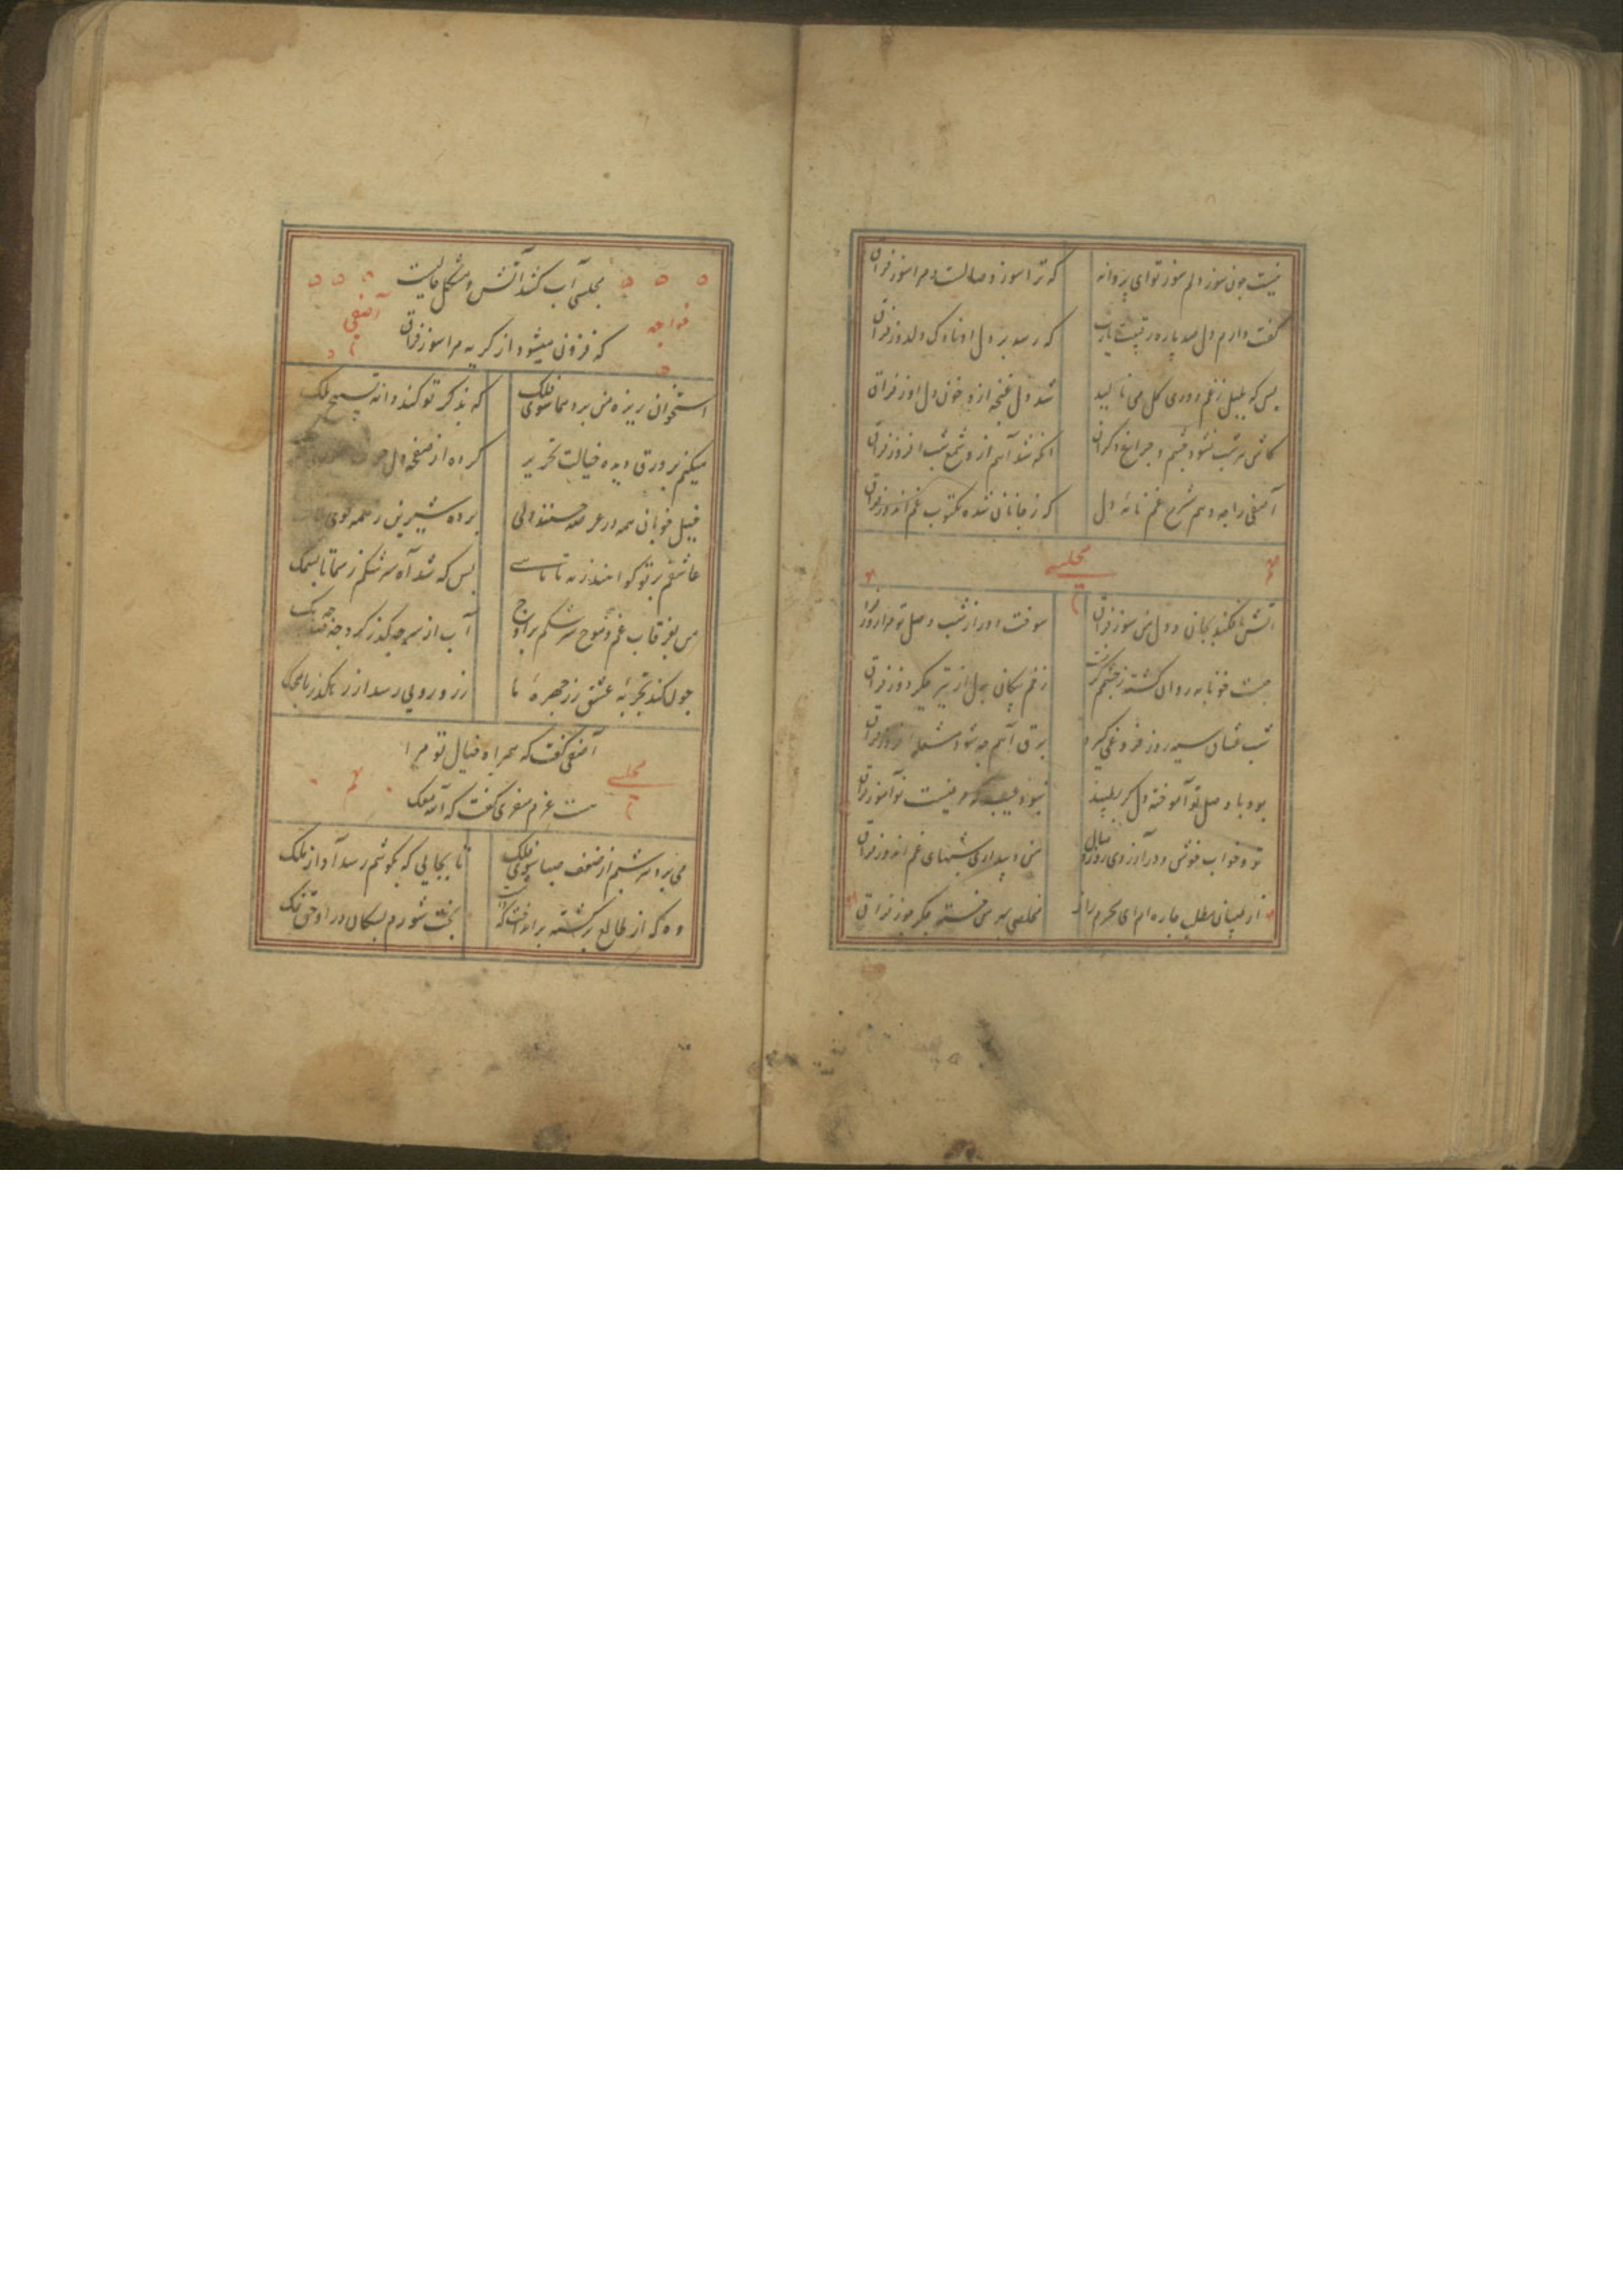 نیست چون سوز دلم سوز تو ای پروانه
که ترا سوز وصالست و مرا سوز فراق
گفت دارم دل صد پاره رقیبت یارب
که رسد بر دل او ناوک دلدوز فراق
بس که بلبل ز غم دوری گل می نالید
شد دل غنچه ازو خون دل اوز فراق
کاش هر شب نشود چشم و چراغ دگران
انکه شد آهم ازو شمع شب افروز فراق
آصفی را چه دهم شرح غم نامه دل
که ز جانان شده مکتوب غم اندوز فراق
مجلسی
آتش افکند بجان و دل من سوز فراق
سوخت اور از شب وصل تو مرا روز فراق
چیست خونابه روان گشته ز چشمم
زخم پیکان بدل از تیر جگر دوز فراق
شب غسان سیه روز فروغی گیرد
برق آهم چه شود شعله افروز فراق
بود با وصل تو آموخته دل گر
نبود عیب که نیست نوآموز فراق
تو و خواب خوش و در آرزوی روز وصال
من و بیداری شبهای غم اندوز فراق
از طبیبان مطلب چاره ام ای محرم راز
مخلصی من خسته جگر سوز فراق
مجلسی آب کشد آتش و مشکل حالیست
که فزون میشود از گریه مرا سوز فراق
خواجه آصفی
استخوان ریزه من برد هما سوی فلک
که بذکر تو کند دانه تسبیح ملک
میکنم بر ورق دیده خیالت تحریر
کرده از صفحه دل
خیل خوبان همه در عرصه حسنند ولی
برده شیرین ز همه گوی
عاشقم بر تو گواهند ز مه تا ماهی
بس که شد آه سرشکم ز سما تا بسمک
من بغرقاب غم و موج سرشکم بر اوج
آب از سر چه گذر کرد چه
چون کند تجربه عشق زر چهره ما
زرد رویی رسد از رهگذر ما بمحک
آصفی گفت که همراه خیال تو مرا
هست عزم سفری گفت که الله معک
مجلسی
می برد ته شبم از ضعف صبا سوی فلک
تا بجایی که بگوشم رسد آواز ملک
وه که از طالع برگشته
بخت شورم